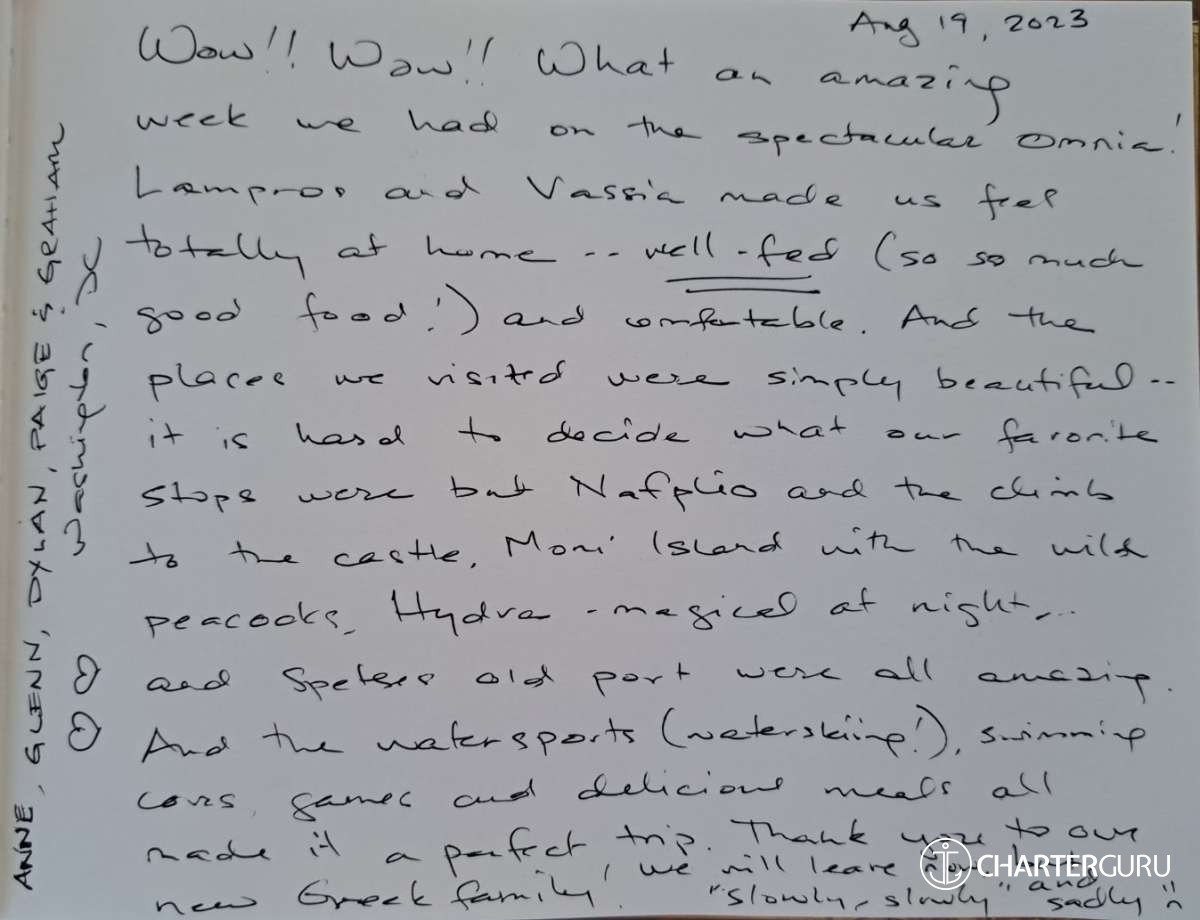 Aug 19, 2023
Wow!! Wow!! What an amazing
week we had on the spectacular Omnia!
Lampros and Vassia made us feel
totally at home -- well-fed (so so much
good food!) and comfortable. And the
places we visited were simply beautiful --
it is hard to decide what our favorite
stops were but Nafplio and the climb
to the castle, Moni Island with the wild
peacocks, Hydra - magical at night,..
and Spetses old port were all amazing.
And the watersports (waterskiing!), swimming
coves, games and delicious meals all
made it a perfect trip. Thank you to our
new Greek family! we will leave now
"slowly, slowly" and sadly
ANNE, GLENN, DYLAN, PAIGE & GRAHAM
Washington,
CHARTERGURU